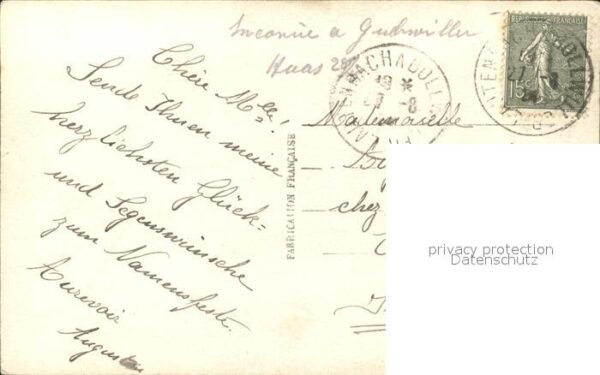 Inconnue à Guebwiller
Haas
Chère Mlle!
Sende Ihnen meine
herzlichsten Glück=
und Segenswünsche
zum Namensfeste.
Aurevoir
FABRICATION FRANÇAISE
REPUBLIQUE FRANÇAISE
15
18 *
-8
Mademoiselle
chez
privacy protection
Datenschutz